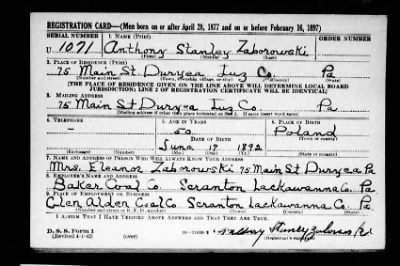 REGISTRATION CARD—(Men born on or after April 28, 1877 and on or before February 16, 1897)
SERIAL NUMBER 1. NAME (Print) ORDER NUMBER
U 1071 Anthony Stanley Zaborowski
(First) (Middle) (Last)
2. PLACE OF RESIDENCE (Print)
75 Main St. Duryea Luz Co. Pa
(Number and street) (Town, township, village, or city) (County) (State)
[THE PLACE OF RESIDENCE GIVEN ON THE LINE ABOVE WILL DETERMINE LOCAL BOARD
JURISDICTION; LINE 2 OF REGISTRATION CERTIFICATE WILL BE IDENTICAL]
3. MAILING ADDRESS
75 Main St Duryea Luz Co. Pa
(Mailing address if other than place indicated on line 2. If same insert word same)
4. TELEPHONE 5. AGE IN YEARS 6. PLACE OF BIRTH
— 50 Poland
DATE OF BIRTH (Town or county)
June 17 1892
(Mo.) (Day) (Yr.) (State or country)
7. NAME AND ADDRESS OF PERSON WHO WILL ALWAYS KNOW YOUR ADDRESS
Mrs. Eleanor Zaborowski 75 Main St Duryea Pa
8. EMPLOYER'S NAME AND ADDRESS
Baker Coal Co. Scranton Lackawanna Co. Pa
9. PLACE OF EMPLOYMENT OR BUSINESS
Glen Alden Coal Co Scranton Lackawanna Co. Pa
(Number and street or R. F. D. number) (Town) (County) (State)
I AFFIRM THAT I HAVE VERIFIED ABOVE ANSWERS AND THAT THEY ARE TRUE.
D. S. S. Form 1
(Revised 4-1-42) (over)